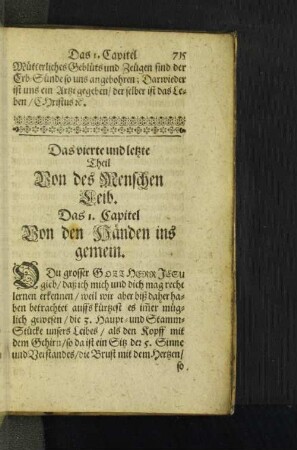 Das 1. Capitel 715
Mütterliches Geblüts und Zeügen sind der
Erb-Sünde so uns angebohren; Darwieder
ist uns ein Artzt gegeben/ der selber ist das Le-
ben/ CHristus ꝛc.
Das vierte und letzte
Theil
Von des Menschen
Leib.
Das 1. Capitel
Von den Händen ins
gemein.
O Du grosser GOTT HERR JESU
gieb/ daß ich mich und dich mag recht
lernen erkennen/ weil wir aber biß daher ha-
ben betrachtet auffs kürtzest es im̃er müg-
lich gewesen/ die 3. Haupt- und Stamm-
Stücke unsers Leibes/ als den Kopff mit
dem Gehirn/ so da ist ein Sitz der 5. Sinne
und Verstandes/ die Brust mit dem Hertzen/
so